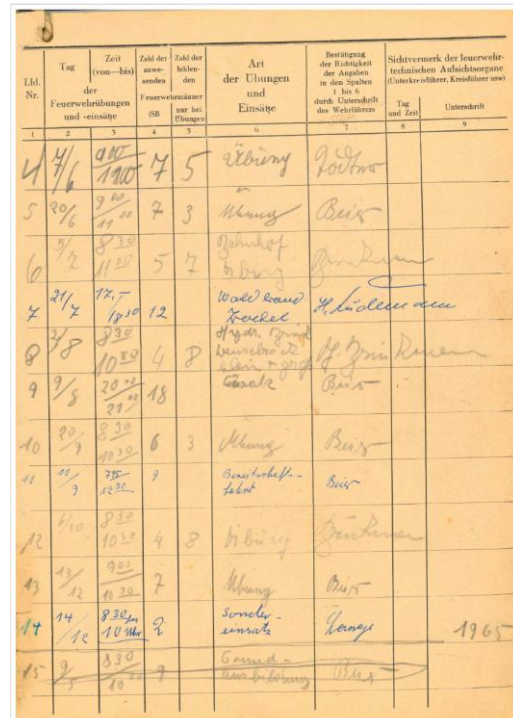 Lfd. Nr.
Tag
Zeit (von—bis)
der Feuerwehrübungen und -einsätze
Zahl der anwe- senden
Zahl der fehlen- den
Feuerwehrmänner
(SB
nur bei Übungen
Art der Übungen und Einsätze
Bestätigung der Richtigkeit der Angaben in den Spalten 1 bis 6 durch Unterschrift des Wehrführers
Sichtvermerk der feuerwehr- technischen Aufsichtsorgane (Unterkreisführer, Kreisführer usw)
Tag und Zeit
Unterschrift
1 2 3 4 5 6 7 8 9
4 7/6 9 00 11 00 7 5 Übung
5 20/6 9 00 11 00 7 3 Übung Beier
6 8 30 11 00 5 7 Bahnhof Übung
7 21/7 17,– 18 30 12 Waldbrand H. Lüdemann
8 2/8 8 30 10 30 4 8
9 9/8 20 00 21 00 18 Einsatz Beier
10 20/9 8 30 10 30 6 3 Übung Beier
11 11/9 9 Bereitschafts- fahrt Beier
12 6/10 8 30 10 30 4 8 Übung
13 13/12 9 00 10 30 7 Übung Beier
14 14/12 8 30 10 Uhr 2 Sonder- einsatz 1965
15 9/5 8 30 10 00 9 Grund- ausbildung Beier